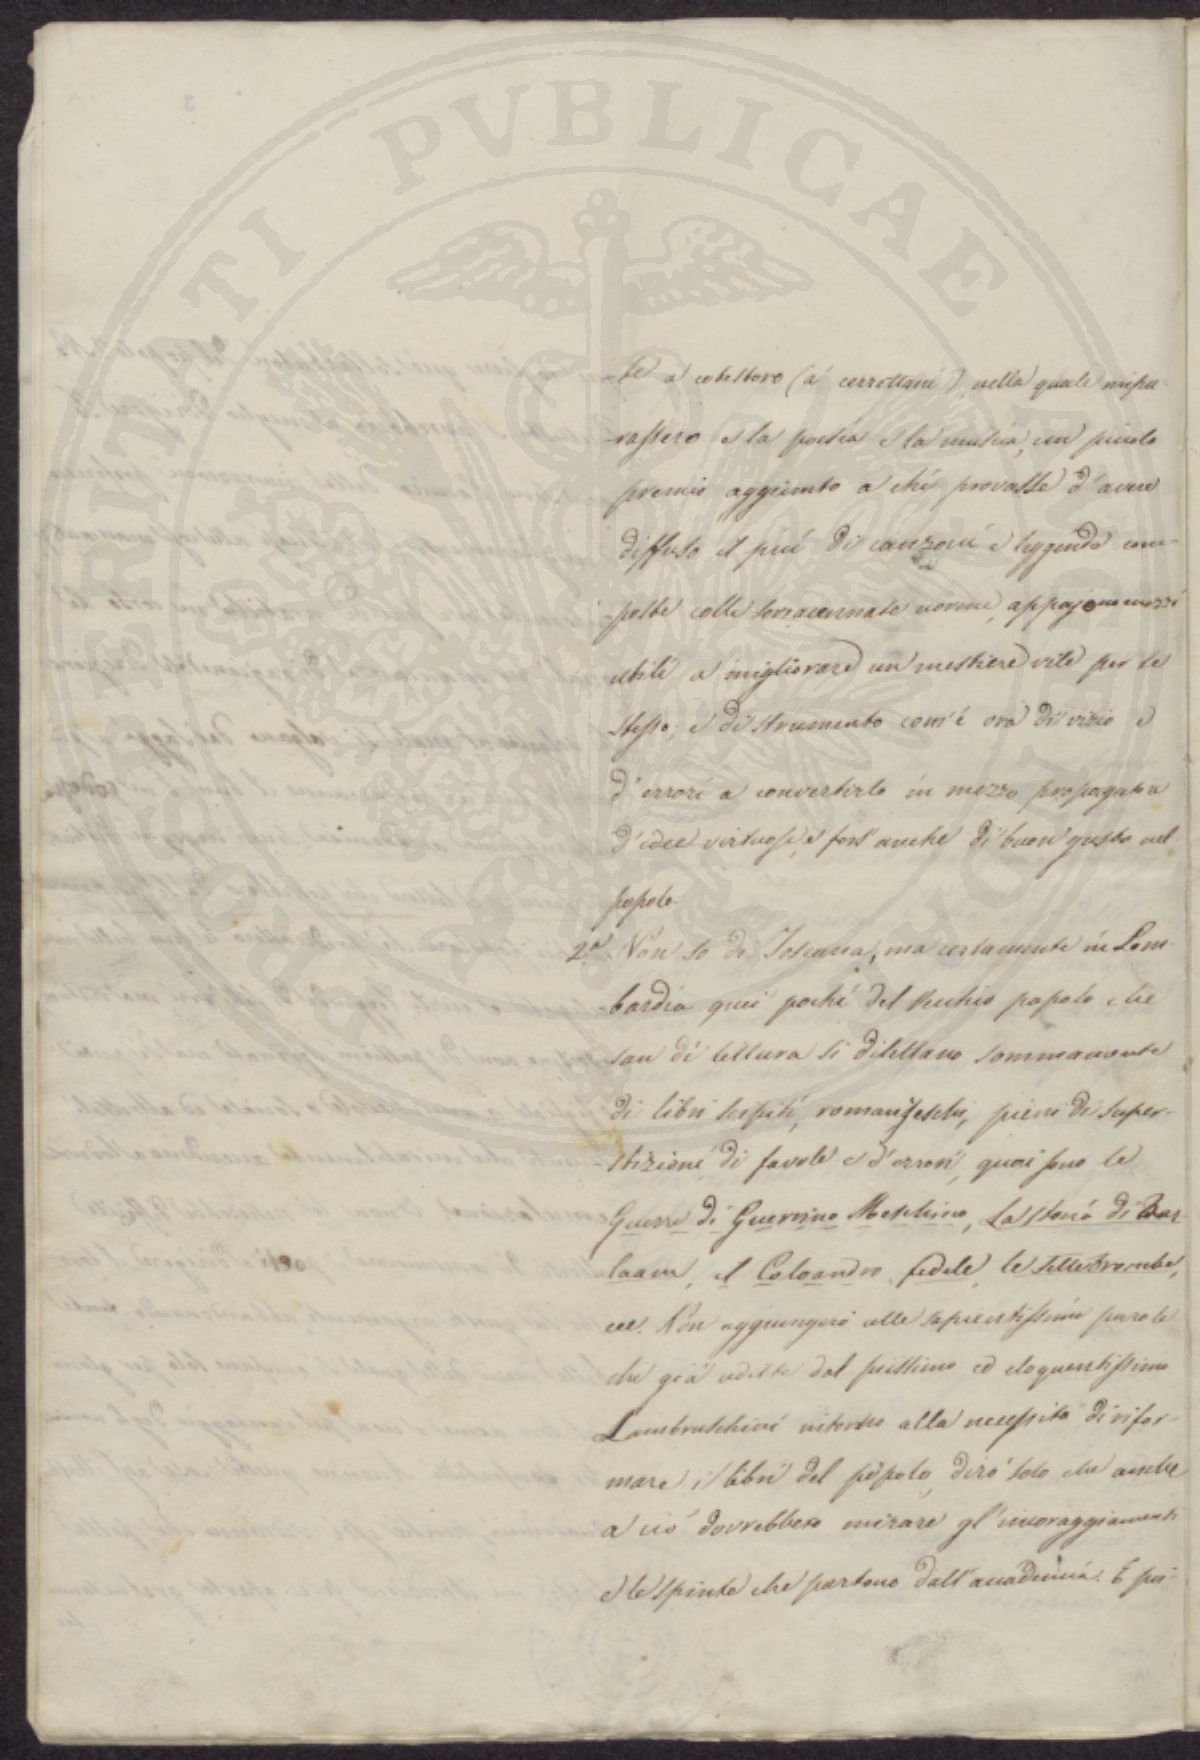 PROSPERITATI PVBLICAE
-te a cotestoro (a' cerrettani), nella quale impa-
-rassero e la poesia e la musica, un piccolo
premio aggiunto a chi provasse d'avere
diffuso il più di canzoni e leggende com-
-poste colle sovraccennate norme, appajono mezzi
utili a migliorare un mestiere vile per se
stesso; e di strumento com'è ora di vizio e
d'errori a convertirlo in mezzo propagatore
d'idee virtuose, e fors'anche di buon gusto nel
popolo.
2.° Non so di Toscana, ma certamente in Lom-
-bardia quei pochi del vecchio popolo che
san di lettura si dilettano sommamente
di libri scipiti, romanzeschi, pieni di super-
-stizioni, di favole e d'errori, quai sono le
Guerre di Guerrino Meschino, La storia di Bar-
laam, il Caloandro fedele, le Sette Trombe,
ecc. Non aggiungerò alle sapientissime parole
che già udiste dal piissimo ed eloquentissimo
Lambruschini intorno alla necessità di rifor-
mare i libri del popolo, dirò solo che anche
a ciò dovrebbero mirare gl'incoraggiamenti
e le spinte che partono dall'accademia. E poi-